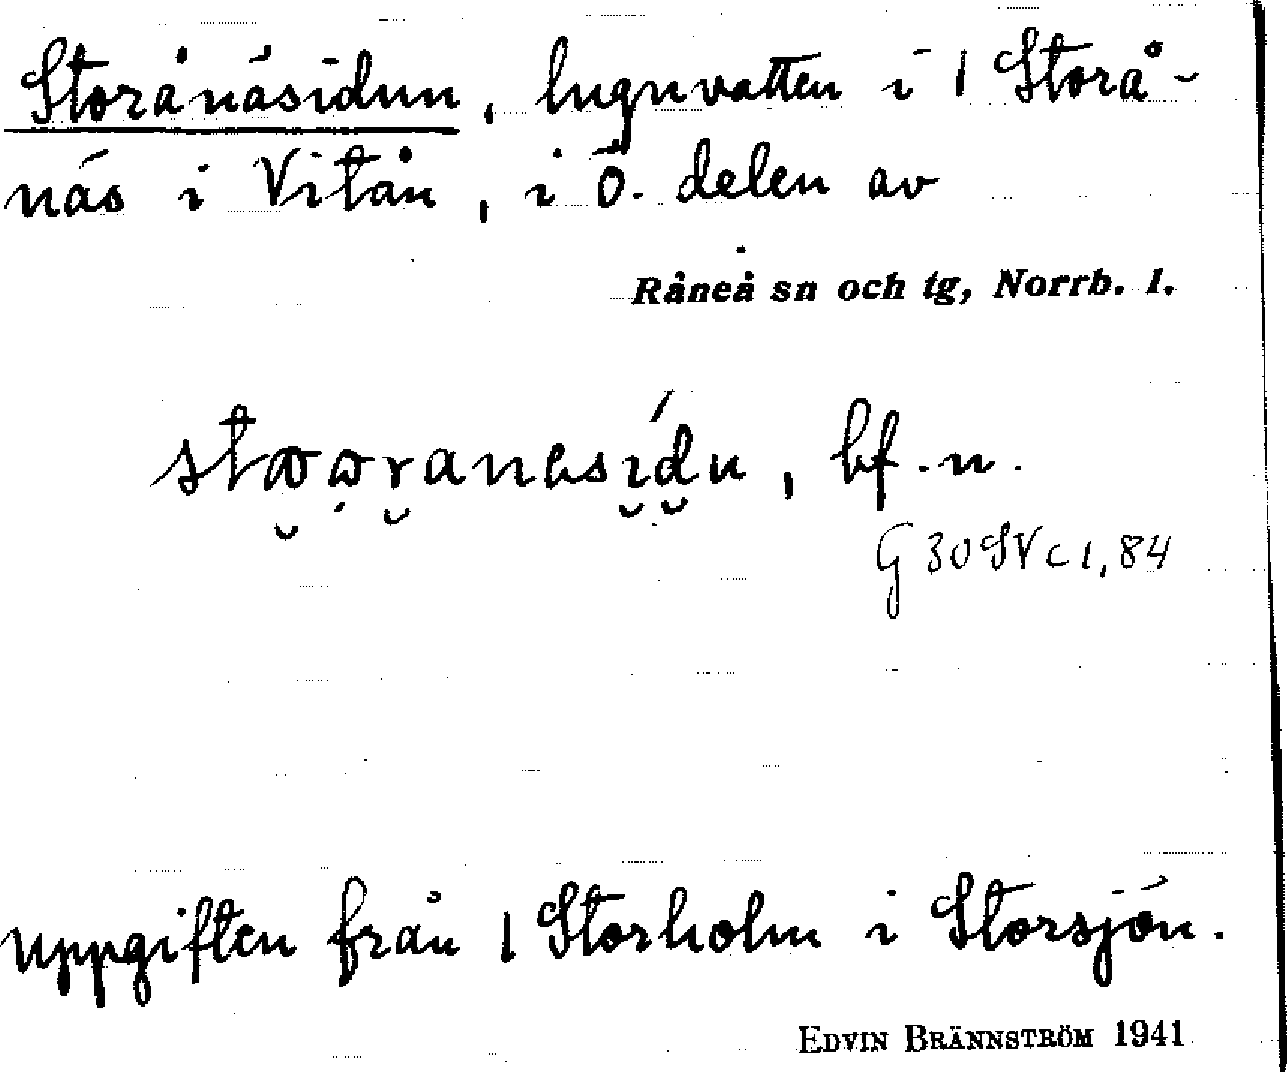 Storånäsidun, lugnvatten i 1 Storå-
näs i Vitån, i Ö. delen av
Råneå sn och tg, Norrb. l.
bf. n.
G 30 SV c 1, 84
uppgiften från 1 Storholm i Storsjön.
EDVIN BRÄNNSTRÖM 1941